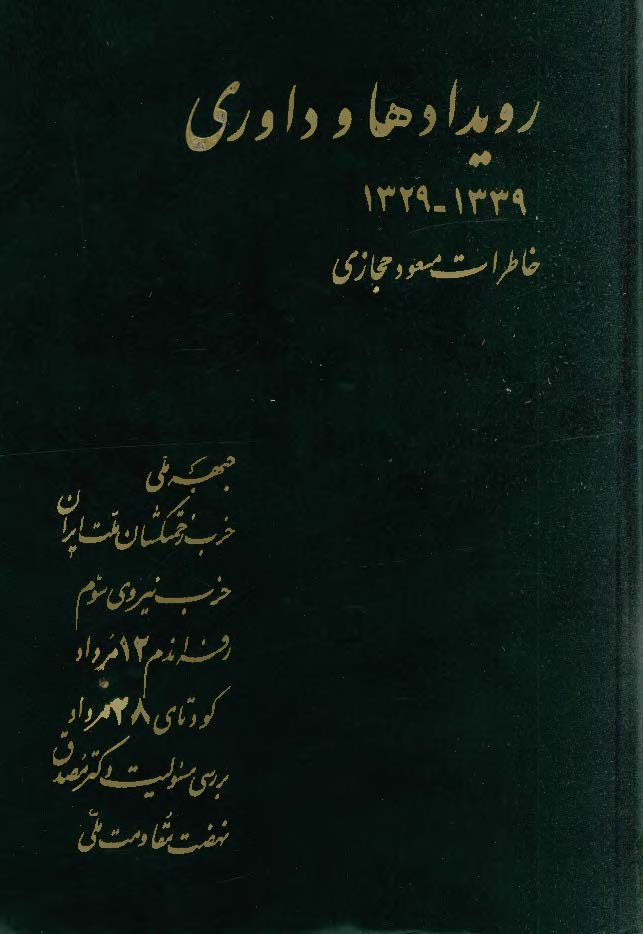 رویدادها و داوری
۱۳۲۹-۱۳۳۹
خاطرات مسعود حجازی
جبههٔ ملی
حزب زحمتکشان ملت ایران
حزب نیروی سوم
رفراندم ۱۲ مرداد
کودتای ۲۸ مرداد
بررسی مسئولیت دکتر مصدق
نهضت مقاومت ملی